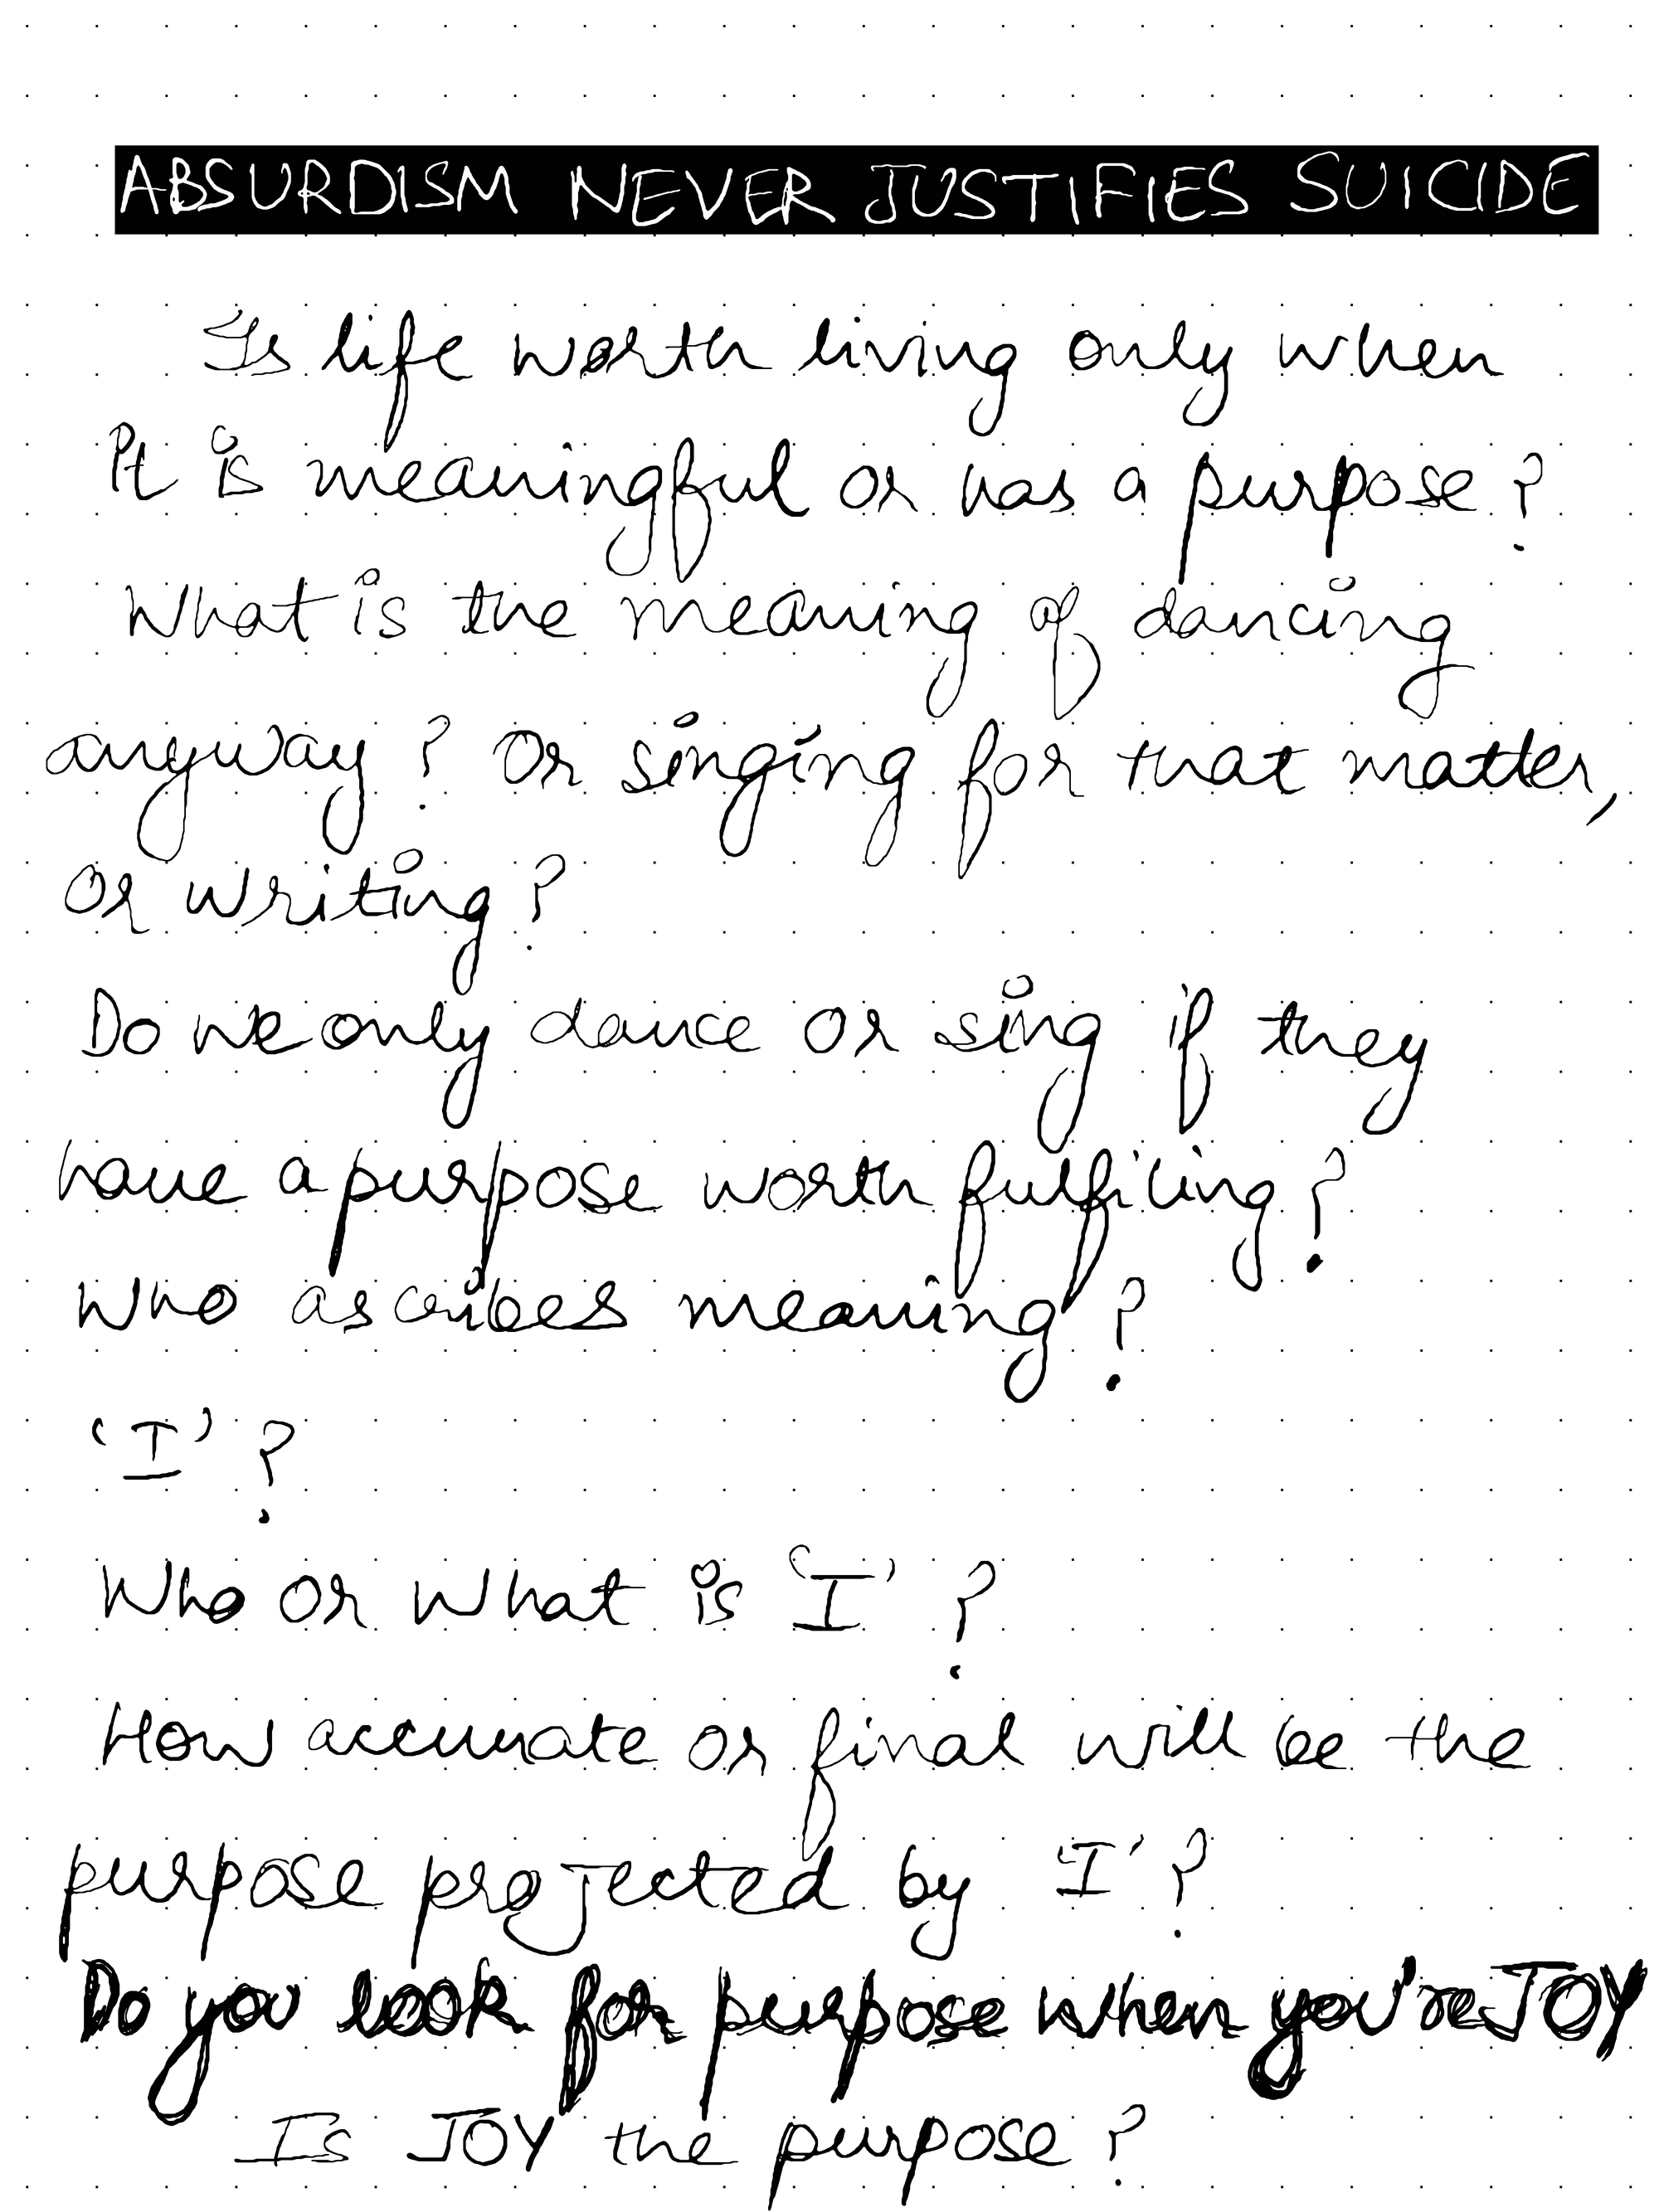 ABSURDISM NEVER JUSTIFIES SUICIDE
Is life worth living only when
It is meaningful or has a purpose?
What is the meaning of dancing
anyway? Or singing for that matter,
or writing?
Do we only dance or sing if they
have a purpose worth fulfilling?
Who ascribes meaning?
'I'?
Who or what is 'I'?
How accurate or final will be the
purpose projected by 'I'?
Do you look for purpose when you're JOY
Is JOY the purpose?